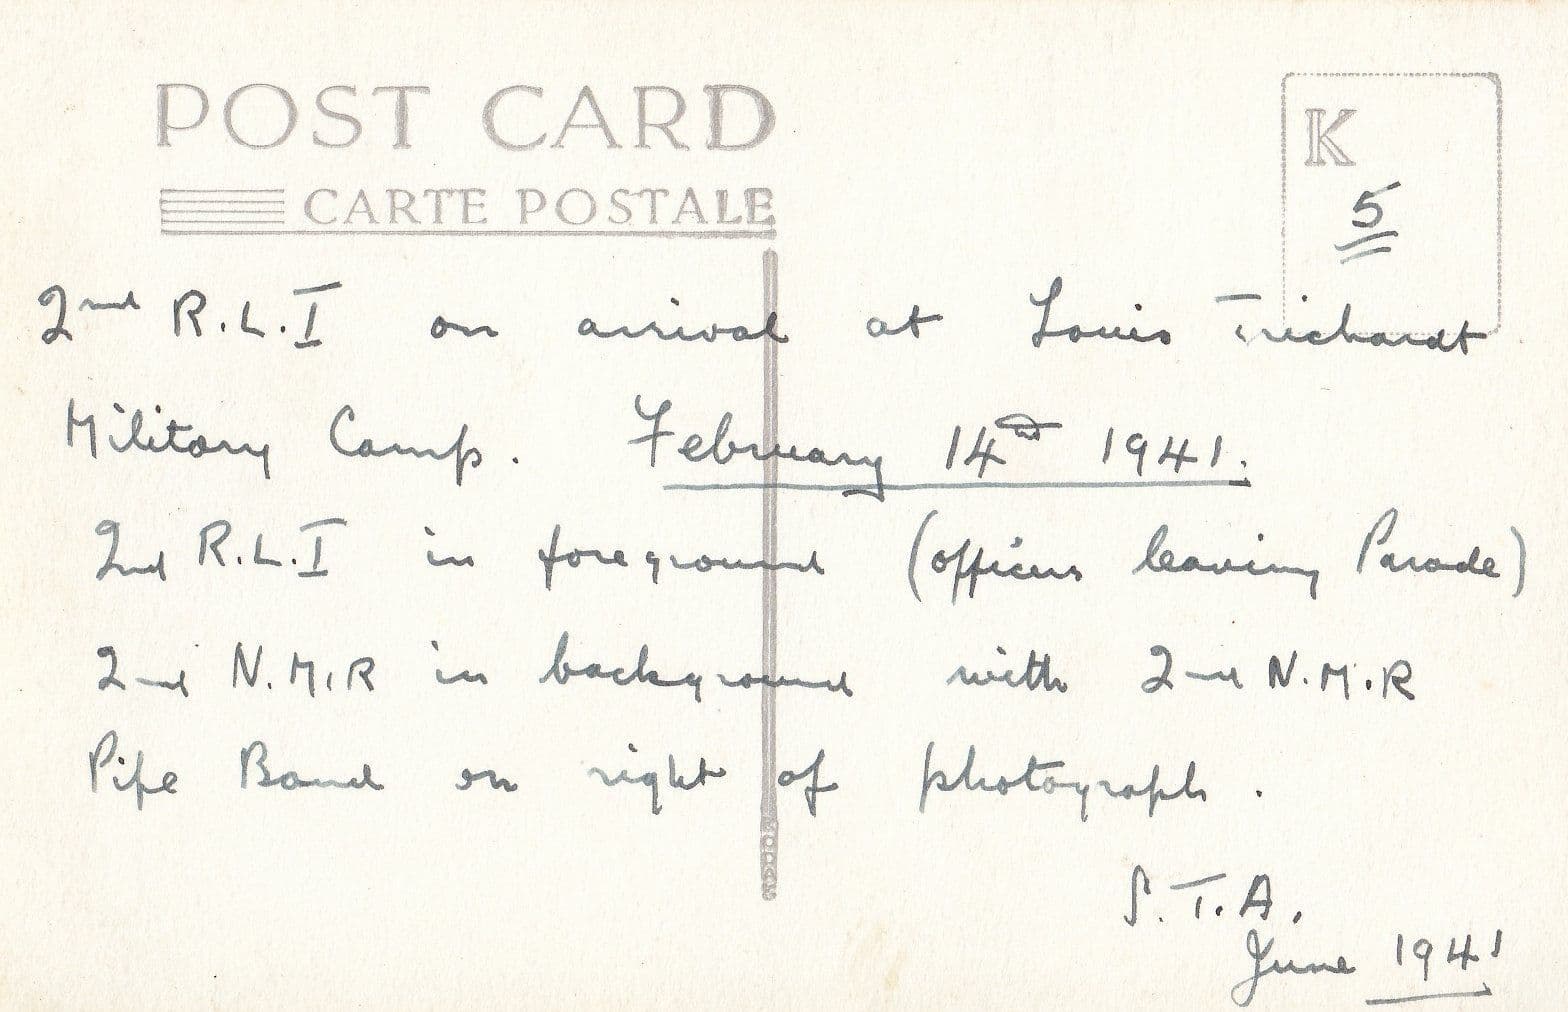 POST CARD
CARTE POSTALE
K
5
2nd R.L.I on arrival at Louis Trichardt
Military Camp. February 14th 1941.
2nd R.L.I in foreground (officers leaving Parade)
2nd N.M.R in background with 2nd N.M.R
Pipe Band on right of photograph.
KODAK
S.T.A.
June 1941